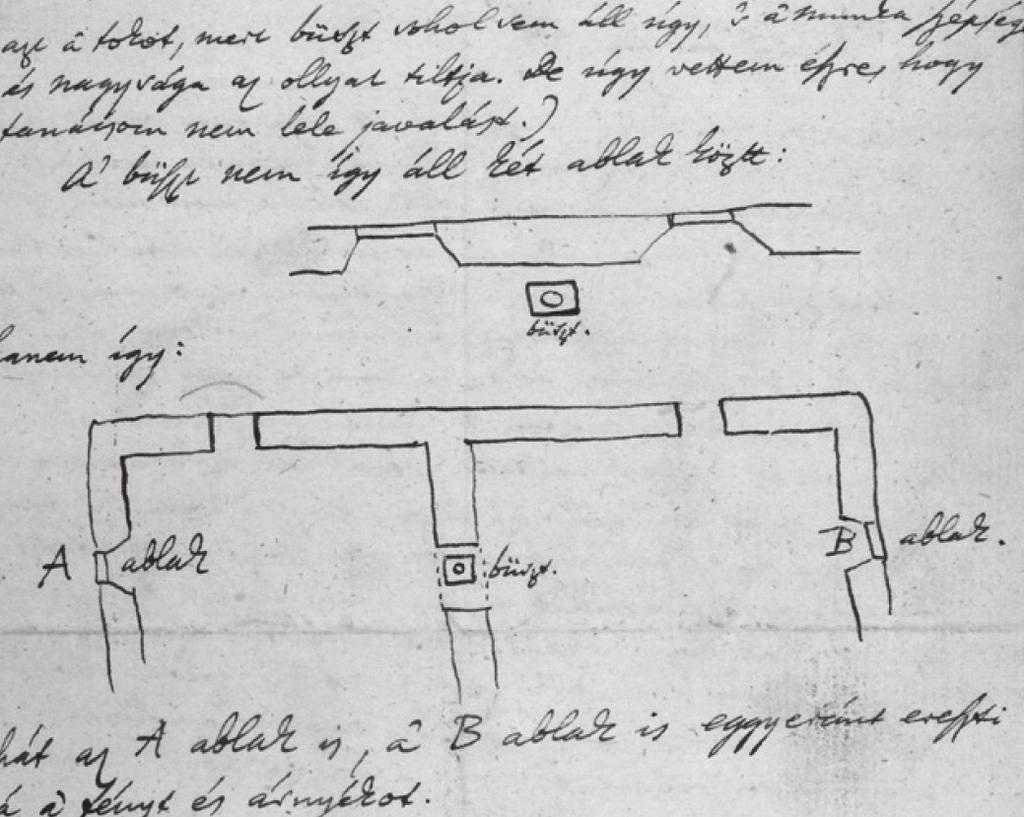 azt â tokot, mert büszt sohol sem áll úgy, 's â munka szépség
és nagysága az ollyat tiltja. De úgy vettem észre, hogy
tanácsom nem lele javalást.)
A' büszt nem így áll két ablak közt:
büszt.
hanem így:
A ablak büszt. B ablak.
hát az A ablak is, â B ablak is eggyeránt ereszti
á â fényt és árnyékot.